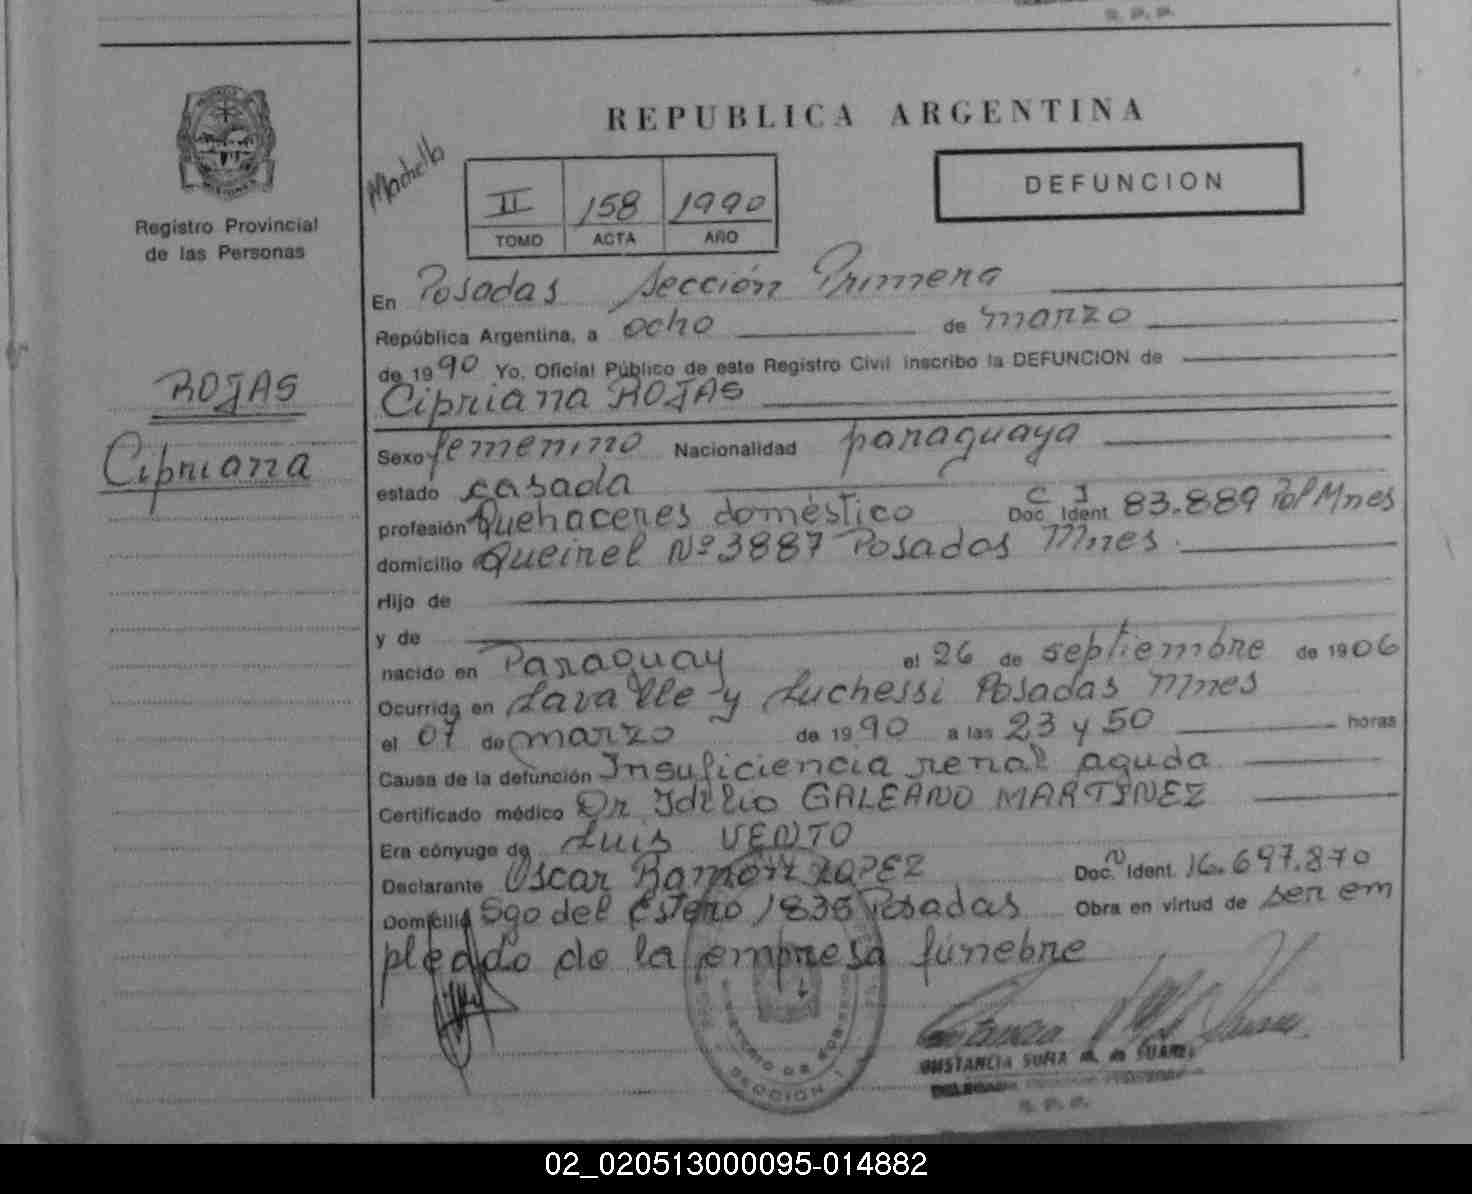 R. P. P.
REPUBLICA ARGENTINA
DEFUNCION
II 158 1990
TOMO ACTA AÑO
Registro Provincial
de las Personas
ROJAS
Cipriana
En Posadas Sección Primera
República Argentina, a ocho de marzo
de 1990 Yo, Oficial Público de este Registro Civil inscribo la DEFUNCION de
Cipriana ROJAS
Sexo femenino Nacionalidad paraguaya
estado casada
profesión Quehaceres doméstico C I Doc Ident 83.889 Pol Mnes
domicilio Queirel Nº 3887 Posadas Mnes.
Hijo de
y de
nacido en Paraguay el 26 de septiembre de 1906
Ocurrida en Lavalle y Luchessi Posadas Mnes
el 07 de marzo de 1990 a las 23 y 50 horas
Causa de la defunción Insuficiencia renal aguda
Certificado médico Dr Idilio GALEANO MARTINEZ
Era cónyuge de Luis VENTO
Declarante Oscar Ramón LOPEZ Doc. Ident. 16.697.870
Domicilio Sgo del Estero 1835 Posadas Obra en virtud de ser em
pleado de la empresa fúnebre
MINISTERIO DE GOBIERNO
SECCION 1
CONSTANCIA SOFIA M. de SUAREZ
R. P. P.
02_020513000095-014882